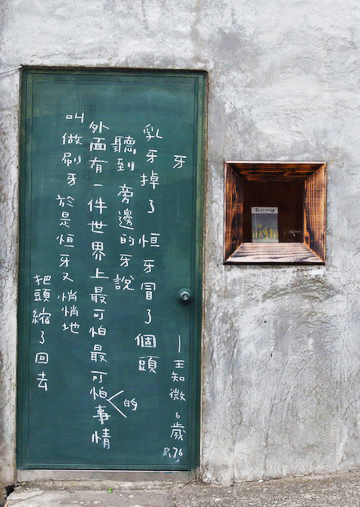 牙
—王知微 6歲
P.76
乳牙掉了 恒牙冒了個頭
聽到 旁邊的牙說
外面有一件世界上最可怕最可怕的事情
叫做刷牙 於是恒牙又悄悄地
把頭縮了回去